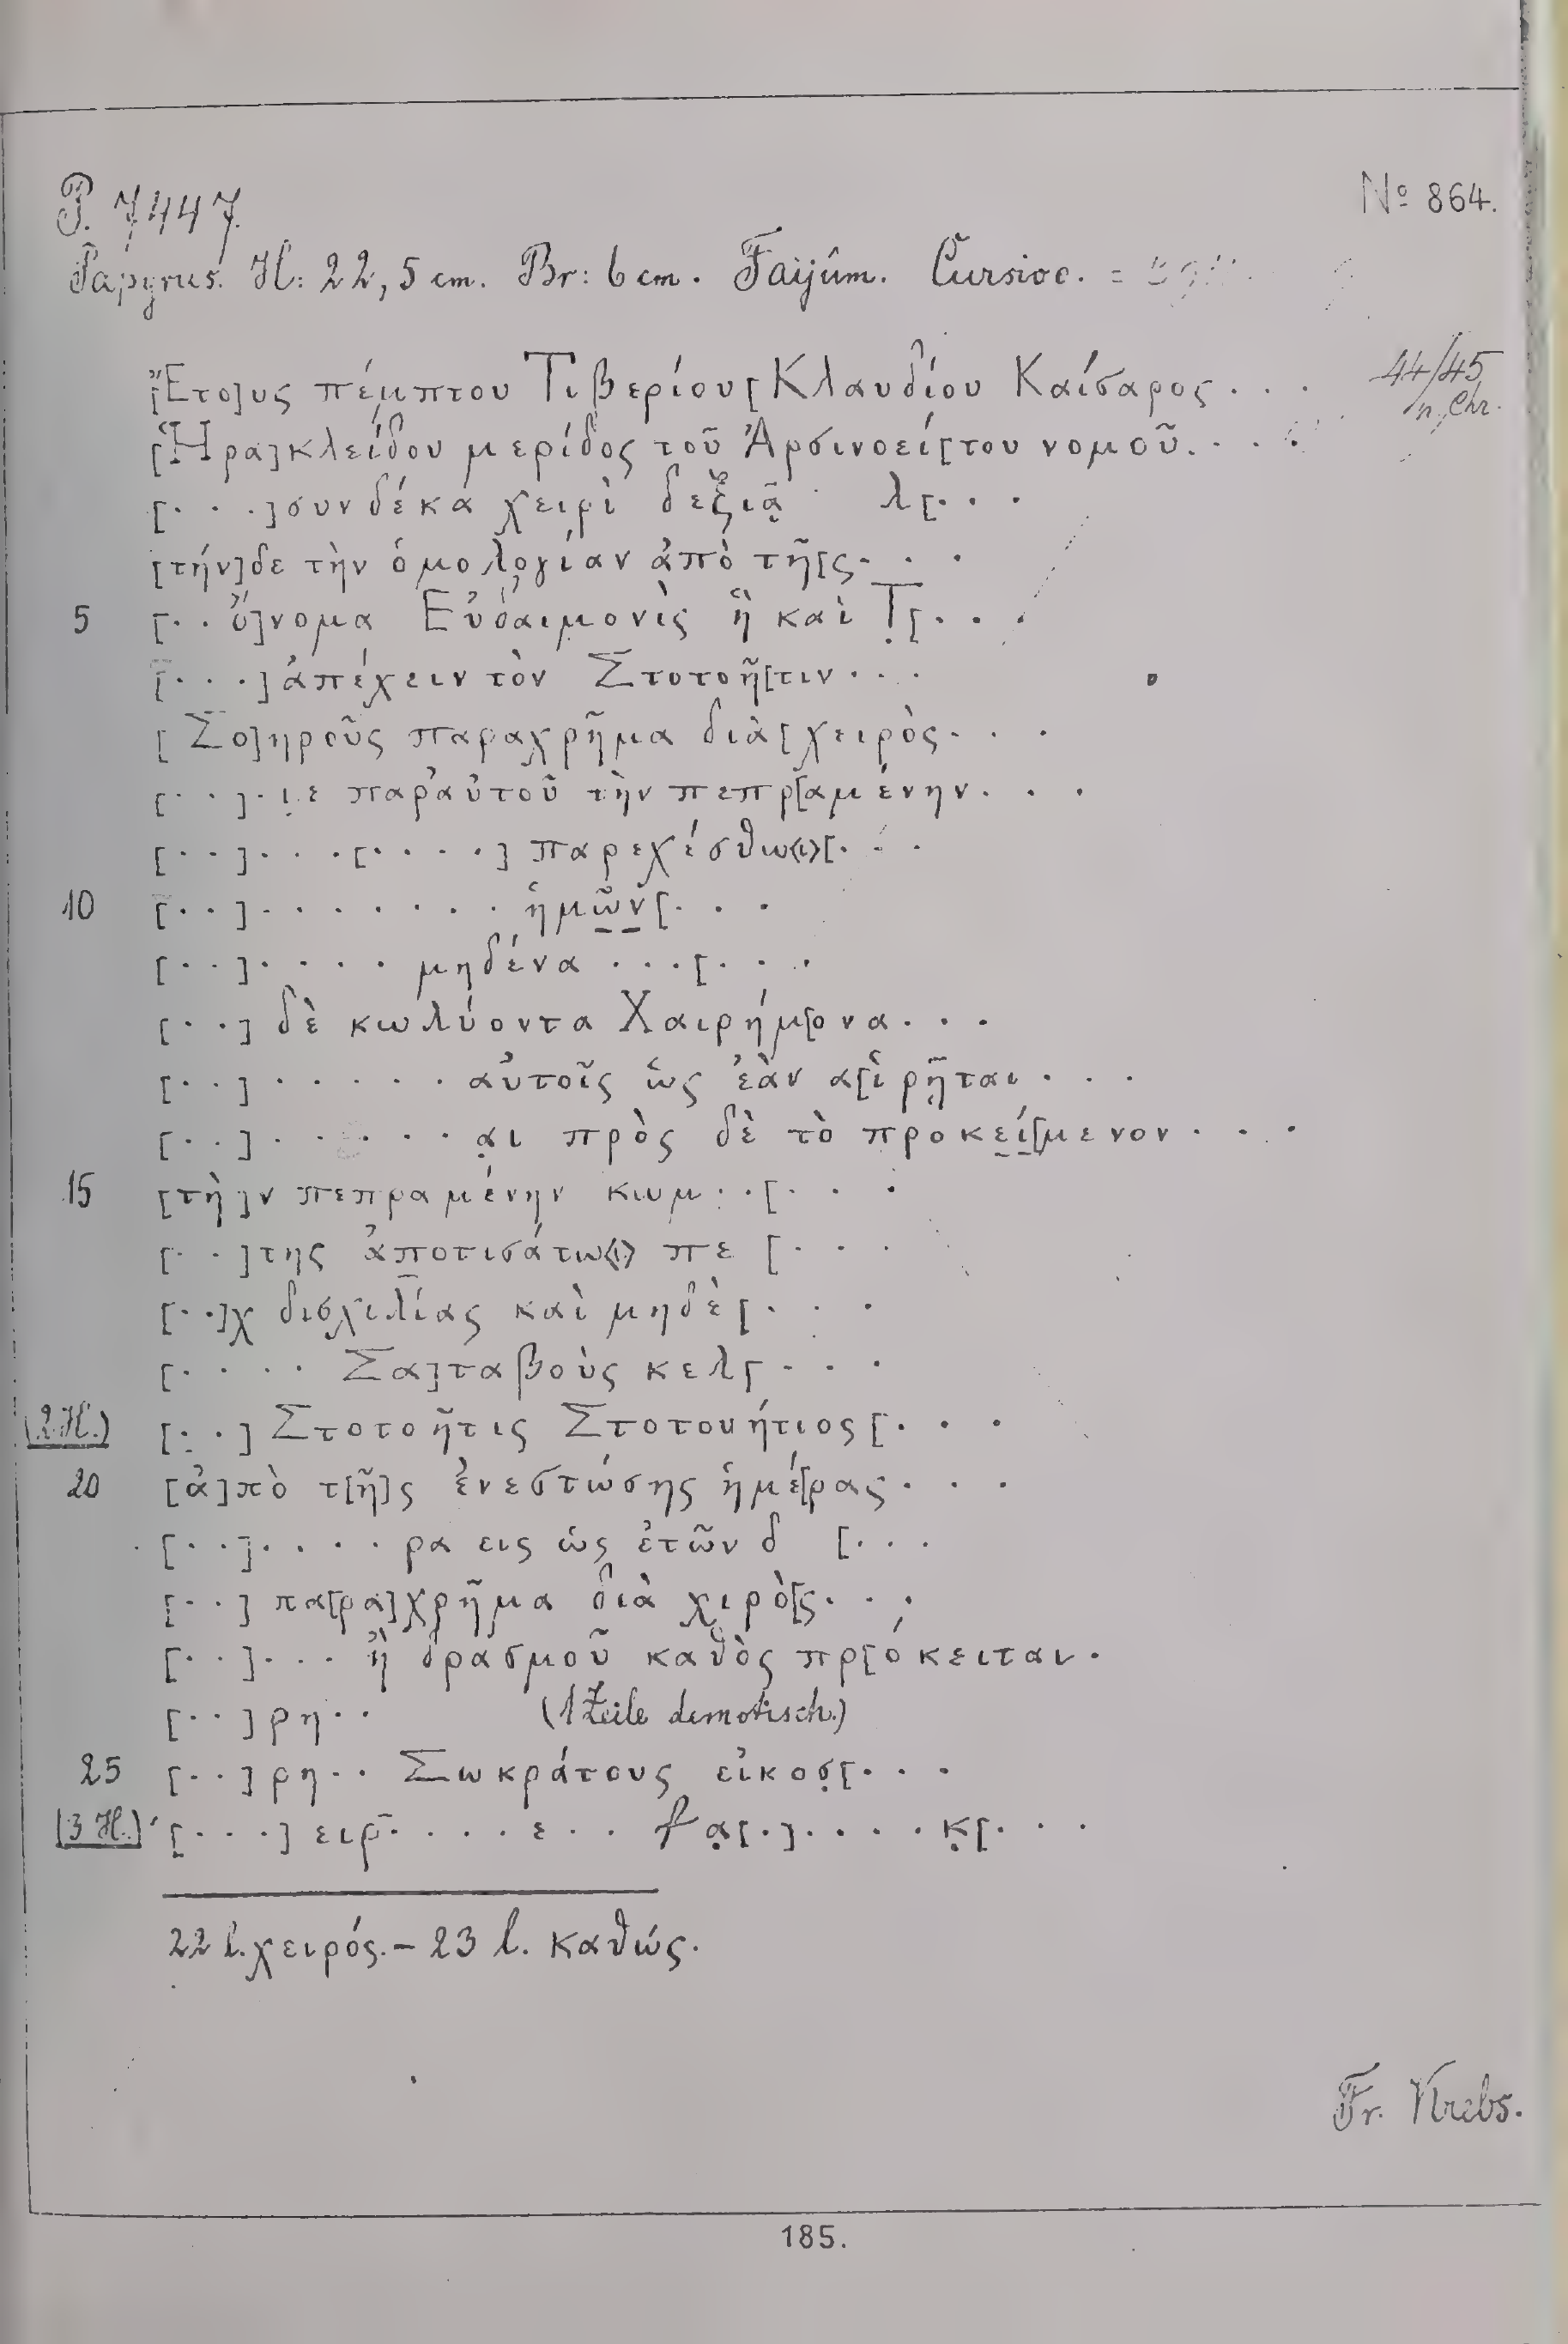 P. 7447.
Nº 864.
Papyrus. H: 22,5 cm. Br: 6 cm. Faijûm. Cursive.
44/45 n. Chr.
[Ἔτο]υς πέμπτου Τιβερίου[ Κλαυδίου Καίσαρος . . .
[Ἡρα]κλείδου μερίδος τοῦ Ἀρσινοεί[του νομοῦ. . . .
[. . .]συνδέκα χειρὶ δεξιᾷ λ[. . .
[τήν]δε τὴν ὁμολογίαν ἀπὸ τῆ[ς . . .
5 [. . ὄ]νομα Εὐδαιμονὶς ἣ καὶ Τ̣[. . .
[. . .]ἀπέχειν τὸν Στοτοῆ[τιν . . .
[Σο]ηροῦς παραχρῆμα διὰ [χειρὸς . . .
[. . .] . ι̣ε παρ' αὐτοῦ τὴν πεπρ[αμένην . . .
[. . .] . . . [. . . .] παρεχέσθω⟨ι⟩[. . .
10 [. . .] . . . . . . . ἡμῶ̣ν̣[. . .
[. . .] . . . . μηδένα . . . [. . .
[. . .] δὲ κωλύοντα Χαιρήμ[ονα . . .
[. . .] . . . . . αὐτοῖς ὡς ἐὰν α[ἱρῆται . . .
[. . .] . . . . . α̣ι πρὸς δὲ τὸ προκε̣ί̣[μενον . . .
15 [τὴ]ν πεπραμένην κωμ . . [. . .
[. . .]της ἀποτισάτω⟨ι⟩ πε [. . .
[. . .]χ δισχιλίας καὶ μηδὲ[. . .
[. . . . Σα]ταβοὺς κελ[. . .
(2 H.) [. . .] Στοτοῆτις Στοτουήτιος[. . .
20 [ἀ]πὸ τ[ῆ]ς ἐνεστώσης ἡμέ[ρας . . .
[. . .] . . . . ρα εις ὡς ἐτῶν δ [. . .
[. . .] πα[ρα]χρῆμα διὰ χιρὸ[ς . . .
[. . .] . . . ἢ δρασμοῦ καθὸς πρ[όκειται .
[. . .]ρη . . (1 Zeile demotisch.)
25 [. . .]ρη . . Σωκράτους εἰκοσ̣[. . .
(3 H.) [. . .] ειρ . . . . ε . . α̣[.] . . . . κ̣[. . .
22 l. χειρός. – 23 l. καθώς.
Fr. Krebs.
185.